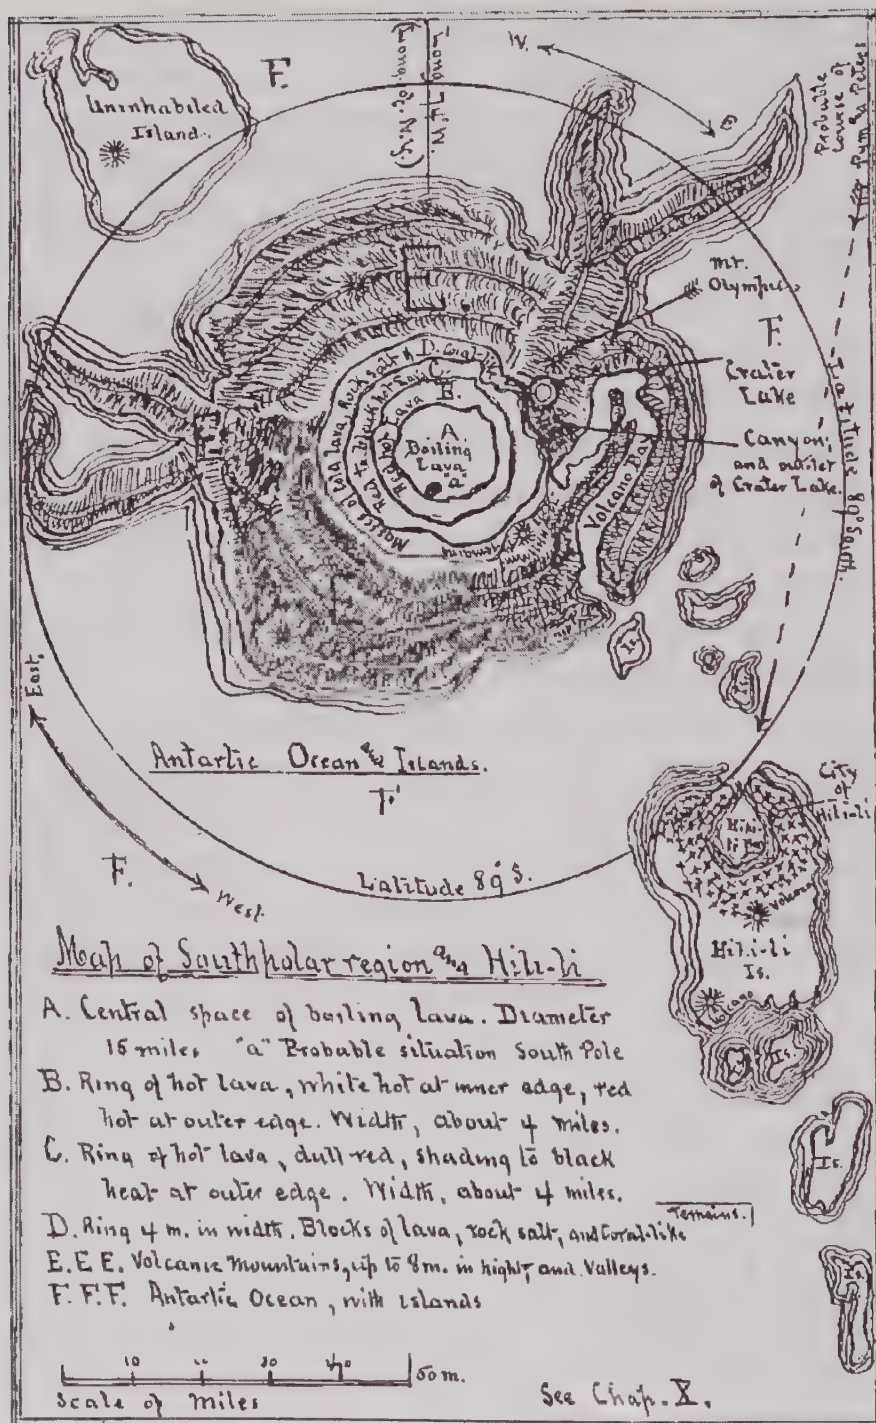 F.
W.
E
Long. 74° W.
Probable
Course of
Pym & Peters
Uninhabited
Island.
E
Mt.
Olympus
F.
Crater
Lake
Canyon,
and outlet
of Crater Lake.
Latitude 89° South.
Mass of Lava, Rock salt & D.
C.
Red to black hot Lava
B.
Red hot Lava
A.
Boiling
Lava
"a"
E
Volcano Bay
E
Is.
Is.
East.
West.
Antartic Ocean and Islands.
F.
F.
Latitude 89° S.
City
of
Hili-li
Hili-
li Bay
Volcano
Hili-li
Is.
Volcano
Is.
Is.
Is.
Map of South polar region and Hili-li
A. Central space of boiling lava. Diameter
15 miles "a" Probable situation South Pole
B. Ring of hot lava, white hot at inner edge, red
hot at outer edge. Width, about 4 miles.
C. Ring of hot lava, dull red, shading to black
heat at outer edge. Width, about 4 miles.
D. Ring 4 m. in width. Blocks of lava, rock salt, and Coral-like
remains.
E. E. E. Volcanic Mountains, up to 8 m. in hight, and Valleys.
F. F. F. Antartic Ocean, with islands
10 20 30 40 50 m.
Scale of Miles
See Chap. X.